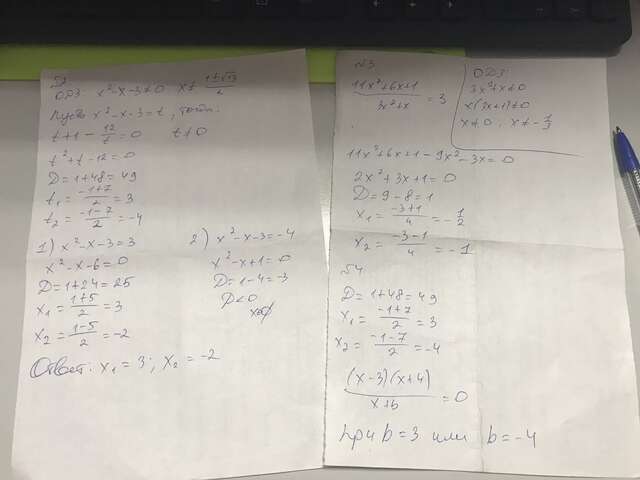 ОДЗ x²-x-3≠0 x≠ (1±√13)/2
Пусть x²-x-3=t, тогда:
t+1-12/t=0 t≠0
t²+t-12=0
D=1+48=49
t₁=(-1+7)/2=3
t₂=(-1-7)/2=-4
1) x²-x-3=3
x²-x-6=0
D=1+24=25
x₁=(1+5)/2=3
x₂=(1-5)/2=-2
2) x²-x-3=-4
x²-x+1=0
D=1-4=-3
D<0
Ответ: x₁=3; x₂=-2
№3
(11x²+6x+1)/(3x²+x)=3
ОДЗ:
3x²+x≠0
x(3x+1)≠0
x≠0; x≠-1/3
11x²+6x+1-9x²-3x=0
2x²+3x+1=0
D=9-8=1
x₁=(-3+1)/4=-1/2
x₂=(-3-1)/4=-1
№4
D=1+48=49
x₁=(-1+7)/2=3
x₂=(-1-7)/2=-4
(x-3)(x+4)/(x+b)=0
при b=3 или b=-4